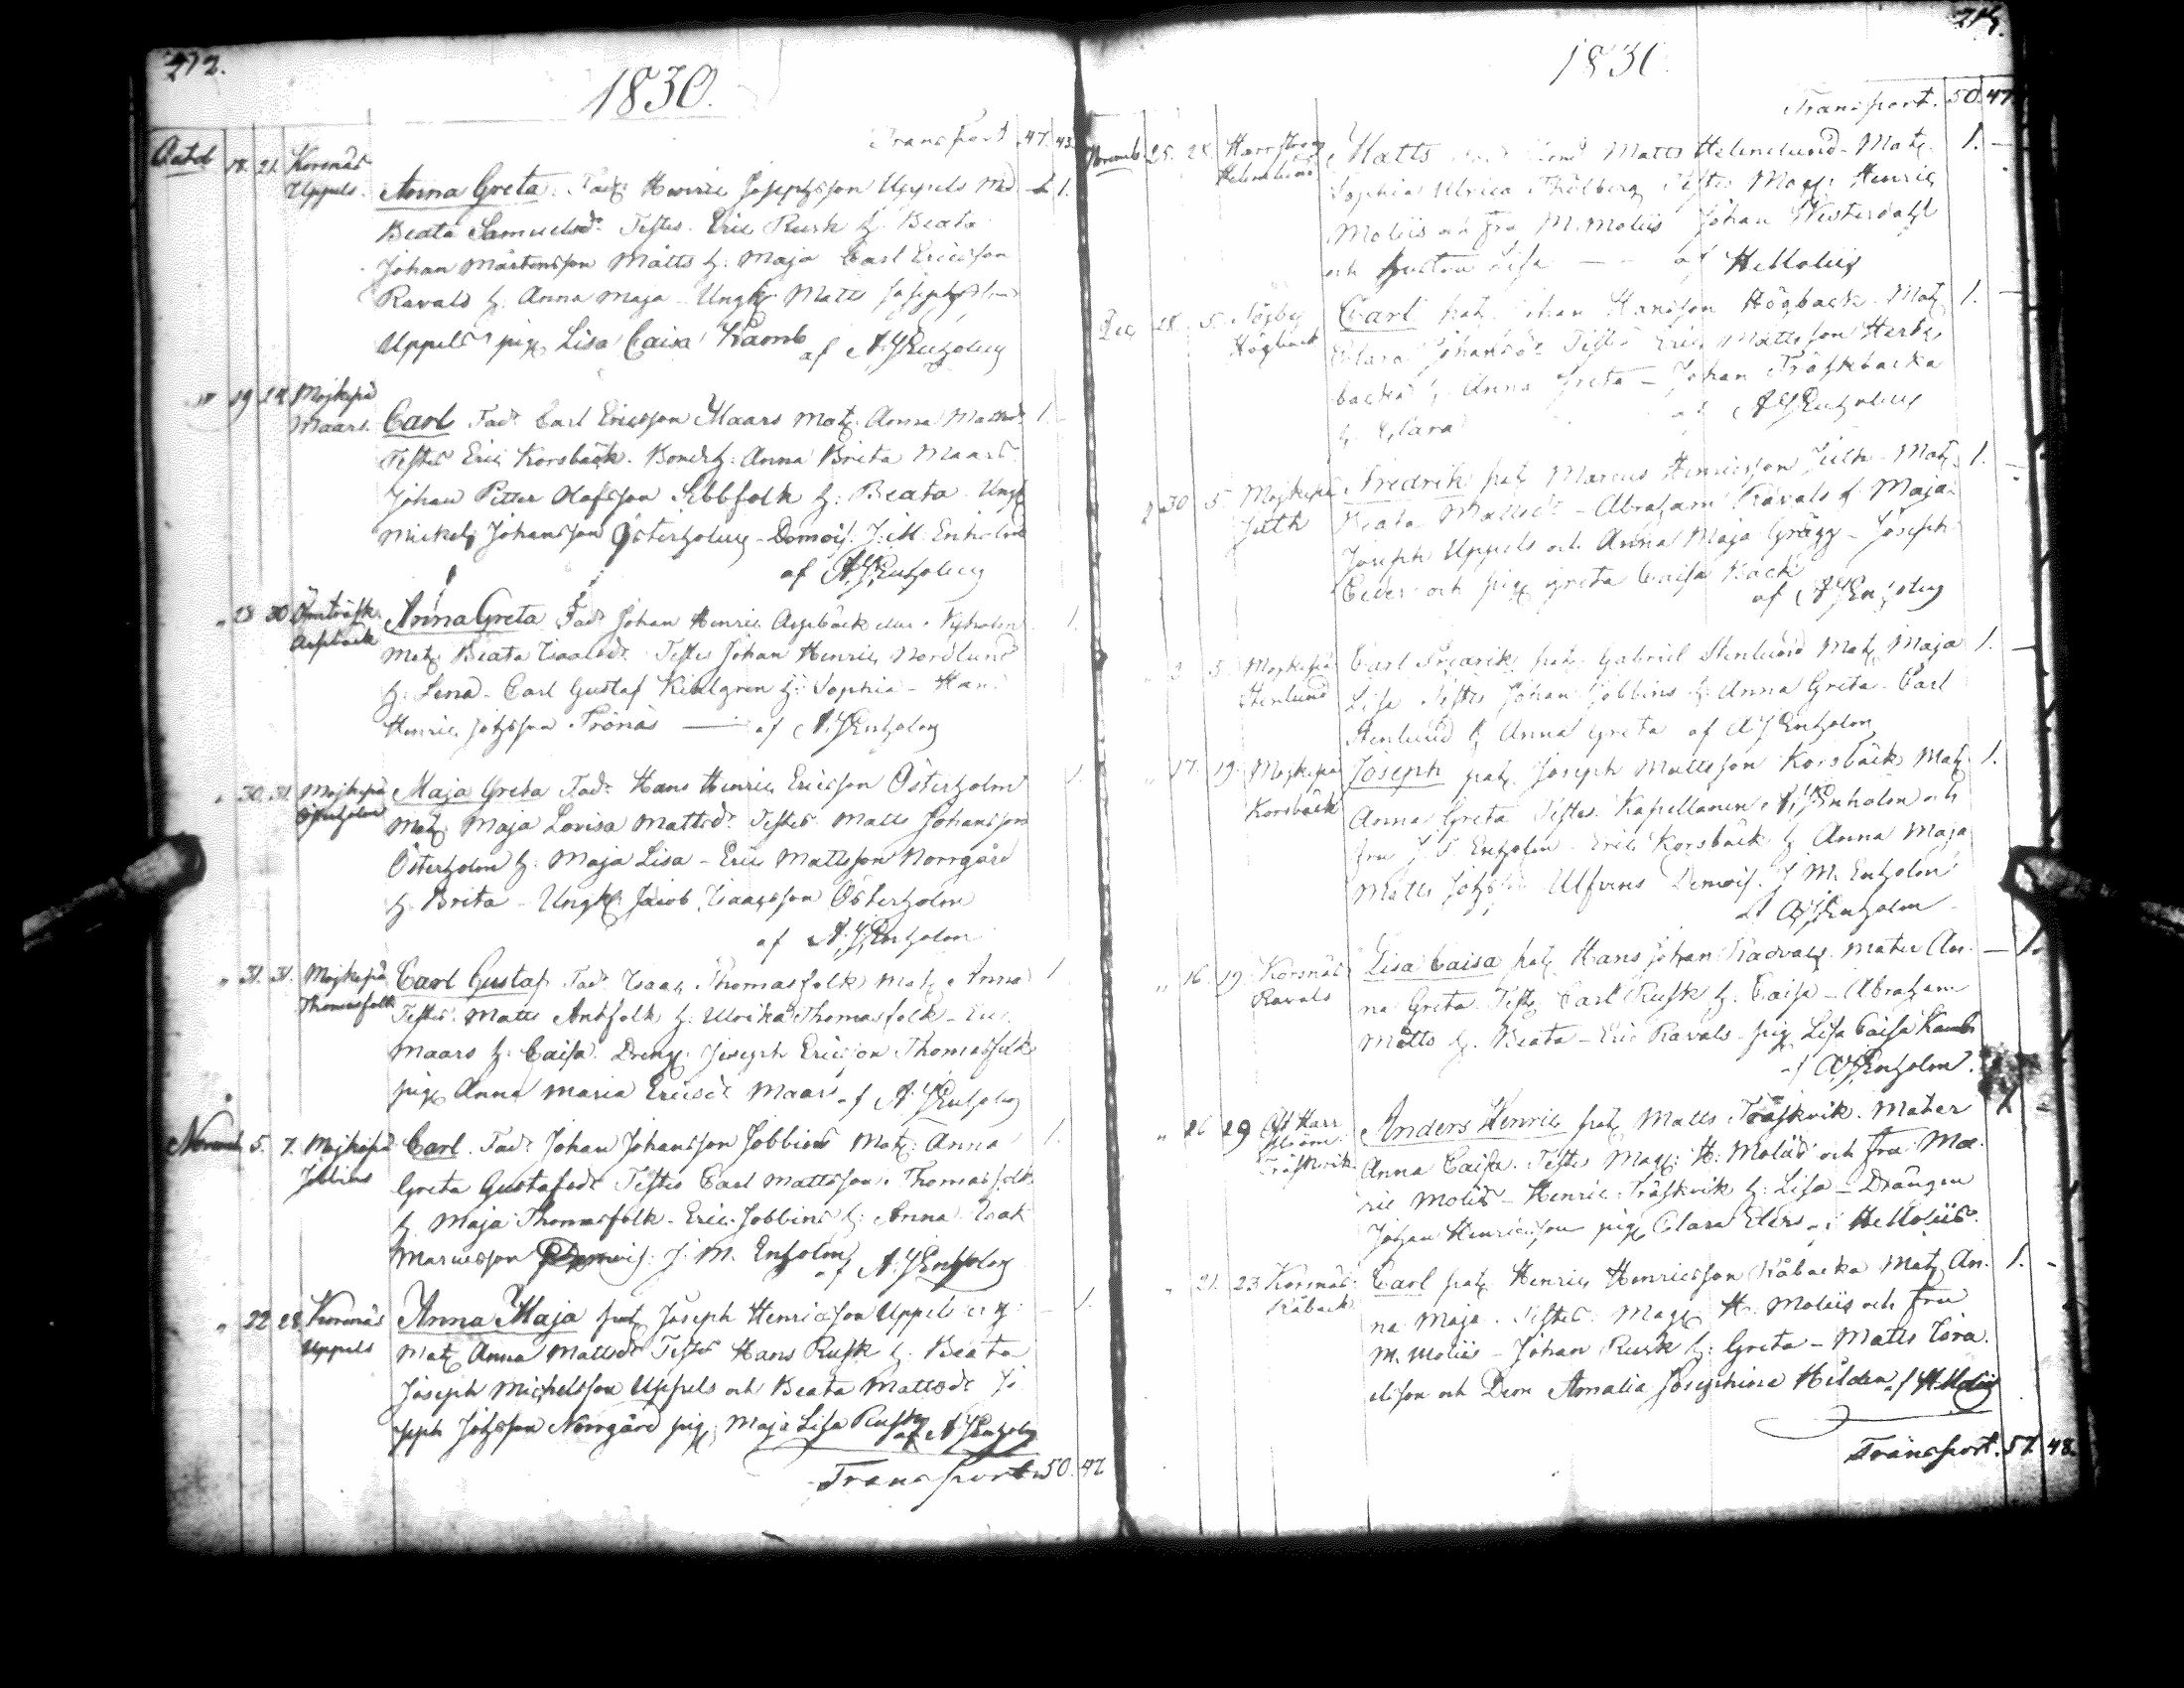 272.
1830.
Transport 47. 43.
Octob 18. 21. Korsnäs
Uppels. Anna Greta. Fadr Henric Josephsson Uppels Mod 1.
Beata Samuelsdr Testes. Eric Rusk h. Beata
Johan Mårtensson Matts h: Maja Carl Ericsson
Ravals h: Anna Maja - Ungk. Matts
Uppels pig. Lisa Caisa Kamb
af A.J.Enholm
19 24 Mojkepä
Maars. Carl Fadr Carl Ericsson Maars Mat. Anna Mattsdr 1.
Testes Eric Korsbäck. Bond h: Anna Brita Maars
Johan Petter Olofsson Sebbfolk h: Beata Ungk
Mickels Johansson Österholm - Demois. J: M. Enholm
af A.J.Enholm
28 30 Ömträsk
Aspback Anna Greta Fadr Johan Henric Aspbäck 1.
Mat. Beata Isaksdr Testes Johan Henric Nordlund
h: Lena - Carl Gustaf h: Sophia - Han
Henric Johsson Trönäs af A.J.Enholm
" 30. 31. Mojkepä
Österholm Maja Greta Fadr Hans Henric Ericsson Österholm 1.
Mat. Maja Lovisa Mattsdr Testes Matts Johansson
Österholm h: Maja Lisa - Eric Mattsson Norrgård
h. Brita - Ungk. Jacob Isaacsson Österholm
af A.J.Enholm
" 31. 31. Mojkepä
Thomasfolk Carl Gustaf Fadr Isaac Thomasfolk Mat. Anna 1
Testes. Matts Antfolk h: Ulrika Thomasfolk - Eric
Maars h: Caisa Dreng. Joseph Ericsson Thomasfolk
pig. Anna Maria Ericsdr Maars af A.J.Enholm
Novemb 5. 7. Mojkepä
Jobbins Carl. Fadr Johan Johansson Jobbins Mat. Anna 1.
Greta Gustafsdr Testes Carl Mattsson Thomasfolk
h. Maja Thomasfolk - Eric Jobbins h: Anna Isak
Marcusson Demois: J: M. Enholm af A.J.Enholm
" 22 28. Korsnäs
Uppels Anna Maja pat. Joseph Henricsson Uppels 1.
Mat. Anna Mattsdr Testes Hans Rusk h: Beata
Joseph Michelsson Uppels och Beata Mattsdr Jo
seph Johsson Norrgård pig. Maja Lisa Rusk af A.J.Enholm
Transport 50. 47
1830
Transport. 50. 47
Novemb. 25. 28 Harrström
Helenelund Matts Matts Helenelund - Mat. 1. -
Sophia Ulrica Testes Mag. Henric
Moliis och Fru M. Moliis Johan Westerdahl
och Lisa af H Moliis
Dec 28. 5. Högback Carl pat. Johan Hansson Högback - Mat. 1. -
Clara Johansdr Testes Eric Mattsson Herts
backa h: Anna Greta - Johan Träskbacka
h. Clara af A.J.Enholm
" 30 5. Mojkepä
Juth Fredrik pat. Marcus Henricsson Juth - Mat. 1. -
Beata Mattsdr - Abraham Ravals h. Maja
Joseph Uppels och Anna Maja Grägg - Joseph
och pig. Greta Caisa Back
af A.J.Enholm
3 5. Mojkepä
Stenlund Carl Fredrik pat. Gabriel Stenlund Mat. Maja 1. -
Lisa Testes Johan Jobbins h. Anna Greta - Carl
Stenlund h Anna Greta af A J Enholm
" 17. 19. Mojkepä
Korsbäck Joseph pat. Joseph Mattsson Korsbäck Mat. 1.
Anna Greta Testes. Kapellanen A.J.Enholm och
Fru Enholm - Eric Korsbäck h Anna Maja
Matts Johsson Ulfvens Demois. J M. Enholm
af A.J.Enholm
" 16. 19. Korsnäs
Ravals Lisa Caisa pat. Hans Johan Ravals Mater An- - 1.
na Greta Testes Carl Rusk h. Caisa - Abraham
Matts h. Beata - Eric Ravals - pig. Lisa Caisa Kamb
af A.J.Enholm.
" 16 19 Harr
ström
Träskvik Anders Henric pat. Matts Träskvik. Mater 1 -
Anna Caisa. Testes Mag. H. Moliis och Fru Ma
rie Moliis - Henric Träskvik h: Lisa - Drängen
Johan Henricsson pig. Clara Eters af H Moliis.
" 21. 23 Korsnäs
Råback Carl pat. Henric Henricsson Råbacka Mat. An. 1. -
na Maja. Testes. Mag. H. Moliis och Fru
M. Moliis - Johan Rusk h: Greta - Matts Isra-
elsson och Dem Amalia Josephina Hilden af H Moliis
Transport. 57. 48.